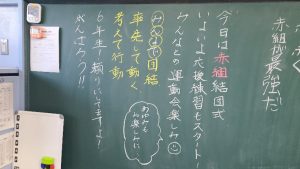 赤組が最強だ
今日は赤組結団式
いよいよ応援練習もスタート！
みんなとの運動会楽しみ
団結
率先して動く
考えて行動
6年生！頼りにしてますよ！
がんばろう!!